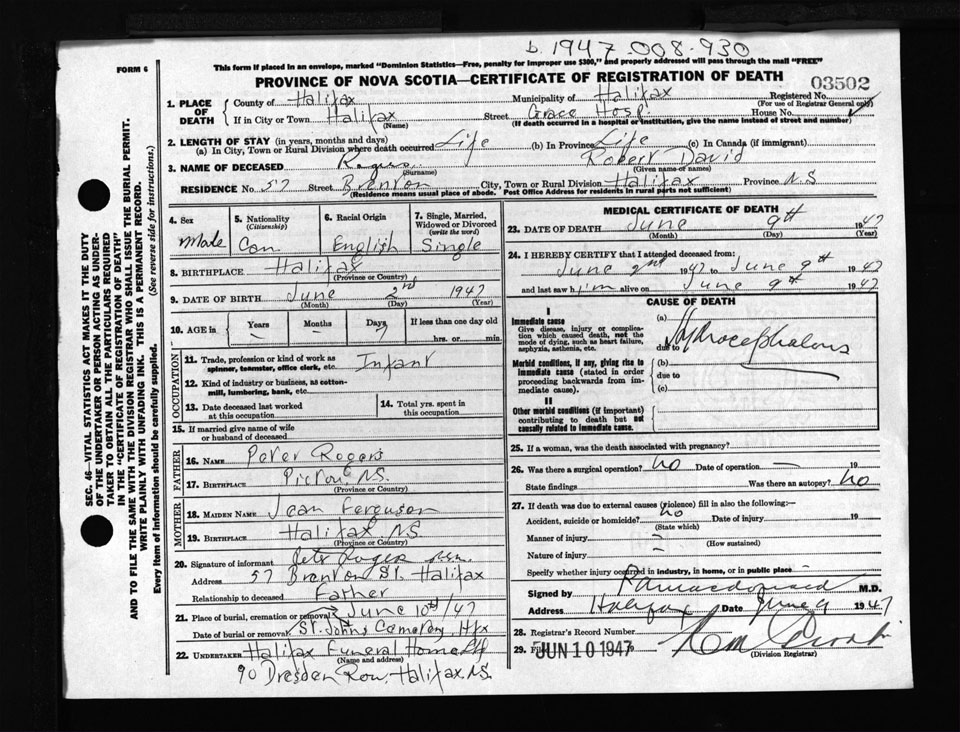 b. 1947-008-930
FORM 6
This form if placed in an envelope, marked "Dominion Statistics—Free, penalty for improper use $300," and properly addressed will pass through the mail "FREE"
PROVINCE OF NOVA SCOTIA—CERTIFICATE OF REGISTRATION OF DEATH
03502
SEC. 46—VITAL STATISTICS ACT MAKES IT THE DUTY
OF THE UNDERTAKER OR PERSON ACTING AS UNDER-
TAKER TO OBTAIN ALL THE PARTICULARS REQUIRED
IN THE "CERTIFICATE OF REGISTRATION OF DEATH"
AND TO FILE THE SAME WITH THE DIVISION REGISTRAR WHO SHALL ISSUE THE BURIAL PERMIT.
WRITE PLAINLY WITH UNFADING INK. THIS IS A PERMANENT RECORD.
Every item of information should be carefully supplied. (See reverse side for instructions.)
1. PLACE OF DEATH
County of Halifax Municipality of Halifax Registered No.
(For use of Registrar General only)
If in City or Town Halifax Street Grace Hosp House No.
(Name) (If death occurred in a hospital or institution, give the name instead of street and number)
2. LENGTH OF STAY (in years, months and days)
(a) In City, Town or Rural Division where death occurred Life (b) In Province Life (c) In Canada (if immigrant)
3. NAME OF DECEASED Rogers Robert David
(Surname) (Given name or names)
RESIDENCE No. 57 Street Brenton City, Town or Rural Division Halifax Province N.S
(Residence means usual place of abode. Post Office Address for residents in rural parts not sufficient)
4. Sex
Male
5. Nationality
(Citizenship)
Can
6. Racial Origin
English
7. Single, Married,
Widowed or Divorced
(write the word)
Single
8. BIRTHPLACE Halifax
(Province or Country)
9. DATE OF BIRTH June 2nd 1947
(Month) (Day) (Year)
10. AGE in Years Months Days If less than one day old
— — 7 hrs. or min.
OCCUPATION
11. Trade, profession or kind of work as
spinner, teamster, office clerk, etc. Infant
12. Kind of industry or business, as cotton-
mill, lumbering, bank, etc.
13. Date deceased last worked
at this occupation
14. Total yrs. spent in
this occupation
15. If married give name of wife
or husband of deceased
FATHER
16. NAME Peter Rogers
17. BIRTHPLACE Pictou, N.S.
(Province or Country)
MOTHER
18. MAIDEN NAME Jean Ferguson
19. BIRTHPLACE Halifax N.S.
(Province or Country)
20. Signature of informant Petr Rogers
Address 57 Brenton St. Halifax
Relationship to deceased Father
21. Place of burial, cremation or removal June 10th/47
Date of burial or removal St. Johns Cemetery, Hfx
22. UNDERTAKER Halifax Funeral Home
(Name and address)
90 Dresden Row, Halifax N.S.
MEDICAL CERTIFICATE OF DEATH
23. DATE OF DEATH June 9th 1947
(Month) (Day) (Year)
24. I HEREBY CERTIFY that I attended deceased from:
June 2nd 1947 to June 9th 1947
and last saw him alive on June 9th 1947
CAUSE OF DEATH
I
Immediate cause
Give disease, injury or complica-
tion which caused death, not the
mode of dying, such as heart failure,
asphyxia, asthenia, etc.
(a) Hydrocephalous
due to
Morbid conditions, if any, giving rise to
immediate cause (stated in order
proceeding backwards from im-
mediate cause).
(b)
due to
(c)
II
Other morbid conditions (if important)
contributing to death but not
causally related to immediate cause.
25. If a woman, was the death associated with pregnancy?
26. Was there a surgical operation? No Date of operation — 19
State findings Was there an autopsy? No
27. If death was due to external causes (violence) fill in also the following:—
Accident, suicide or homicide? No Date of injury 19
(State which)
Manner of injury
(How sustained)
Nature of injury
Specify whether injury occurred in industry, in home, or in public place
Signed by M.D.
Address Halifax Date June 9 1947
28. Registrar's Record Number
29. Filed JUN 10 1947
(Division Registrar)